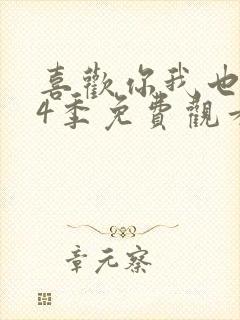 喜歡你我也
4季免費觀看
章元察